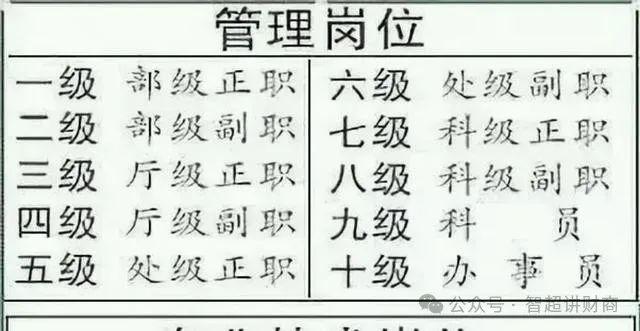 管理岗位
一级 部级正职
二级 部级副职
三级 厅级正职
四级 厅级副职
五级 处级正职
六级 处级副职
七级 科级正职
八级 科级副职
九级 科员
十级 办事员
公众号·智超讲财商